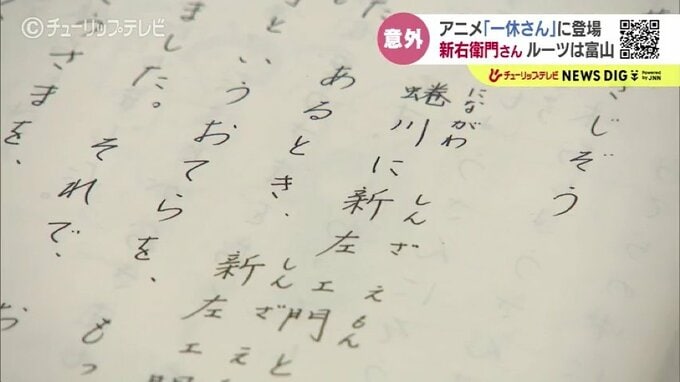 ©チューリップテレビ
意外
アニメ「一休さん」に登場
新右衛門さん ルーツは富山
チューリップテレビ NEWS DIG Powered by JNN
じぞう
にながわ しんざえもん
蜷川に新左エ門
あるとき、しんざえ
新左エ門と
いうおてらを、
した。それで、もっ
さまを、お